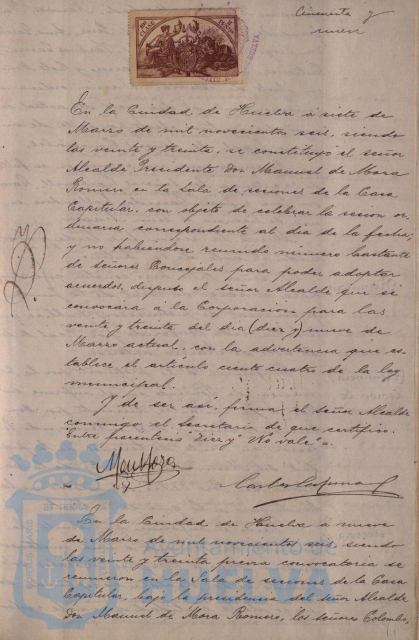 Cincuenta y
nueve
En la Ciudad de Huelva á siete de
Marzo de mil novecientos seis, siendo
las veinte y treinta, se constituyó el señor
Alcalde Presidente Don Manuel de Mora
Romero en la Sala de sesiones de la Casa
Capitular, con objeto de celebrar la sesion or
dinaria correspondiente al dia de la fecha;
y no habiéndose reunido número bastante
de señores Concejales para poder adoptar
acuerdos, dispuso el señor Alcalde que se
convocara á la Corporacion para las
veinte y treinta del dia (diez y) nueve de
Marzo actual, con la advertencia que es-
tablece el artículo ciento cuatro de la ley
municipal.
Y de ser asi, firma el señor Alcalde
conmigo el Secretario de que certifico.
Entre parentesis "diez y" No vale".
En la Ciudad de Huelva á nueve
de Marzo de mil novecientos seis, siendo
las veinte y treinta previa convocatoria se
reunieron en la Sala de sesiones de la Casa
Capitular, bajo la presidencia del señor Alcalde
Don Manuel de Mora Romero, los señores Colombo,
Ayuntamiento de
HUELVA